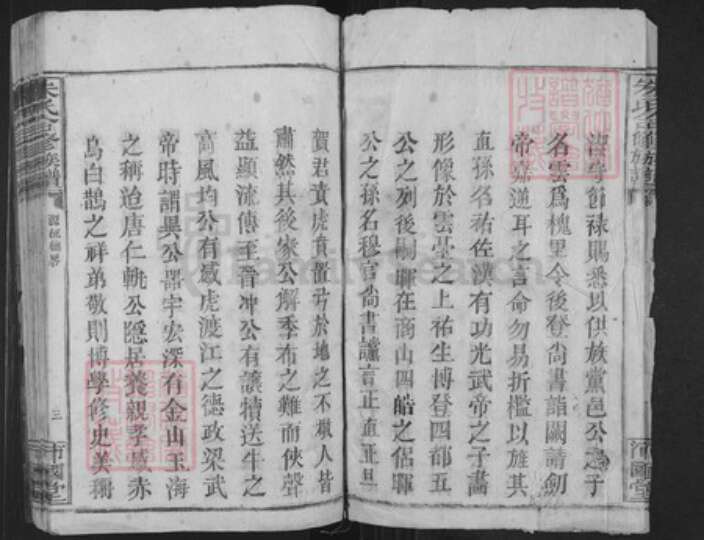 朱氏
没身節祿賜悉以供族黨邑公之子
名雲爲槐里令後登尚書詣闕請劍
帝嘉逆耳之言命勿易折檻以旌其
直孫名祐佐漢有功光武帝之子畫
形像於雲臺之上祐生博登四部五
公之列後嗣暉在商山四皓之侶暉
公之孫名穆官尚書讜言正直正旦
賀君賁虎賁於地之不敢人皆
肅然其後家公解季布之難而俠聲
益顯流傳至晉冲公有讓犢送牛之
高風均公有感虎渡江之德政梁武
帝時謂异公器宇宏深有金山玉海
之稱迨唐仁軌公隱居養親孝感赤
烏白鵲之祥弟敬則博學修史美稱
朱氏合修族譜
三
沛國堂
沛國堂
FamilySearch